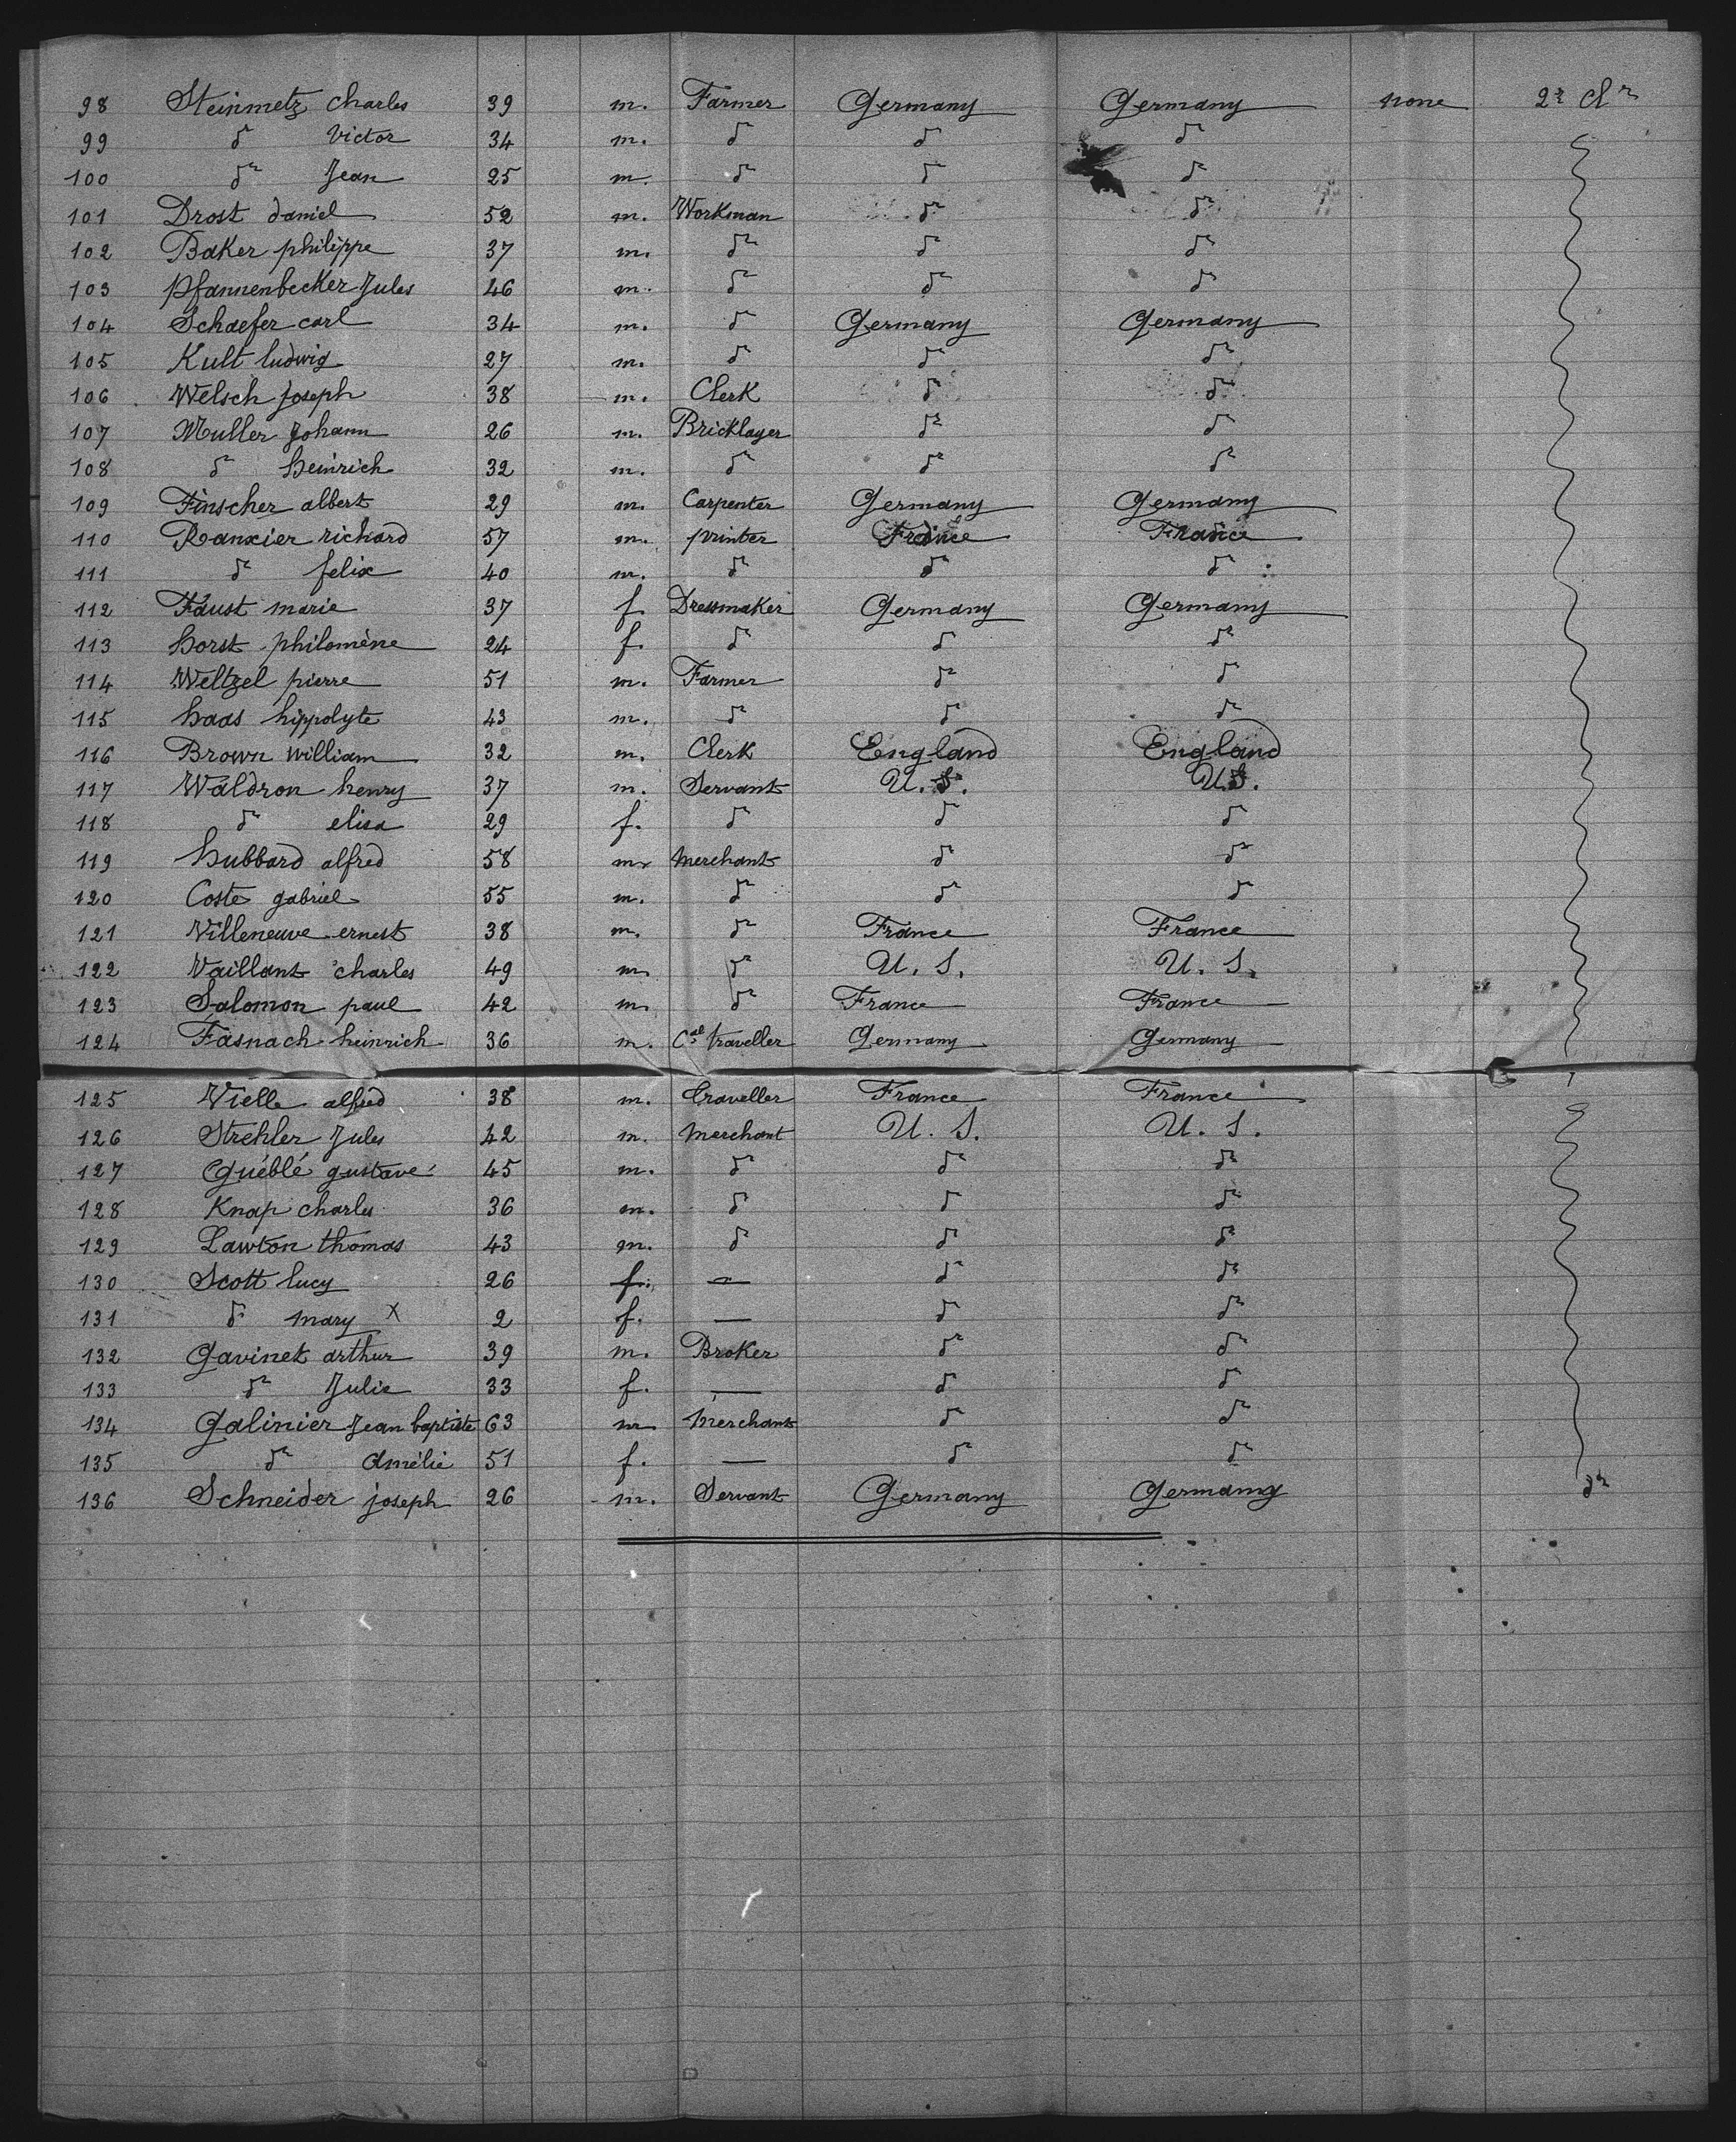 98 Steinmetz Charles 39 m. Farmer Germany Germany none 2r Cln
99 do Victor 34 m. do do do
100 do Jean 25 m. do do do
101 Drost daniel 52 m. Workman do do
102 Baker philippe 37 m. do do do
103 Pfannenbecker Jules 46 m. do do do
104 Schaefer carl 34 m. do Germany Germany
105 Kult ludwig 27 m. do do do
106 Welsch Joseph 38 m. Clerk do do
107 Muller Johann 26 m. Bricklayer do do
108 do heinrich 32 m. do do do
109 Finscher albert 29 m. Carpenter Germany Germany
110 Ranxier richard 57 m. printer France France
111 do felix 40 m. do do do
112 Faust marie 37 f. Dressmaker Germany Germany
113 horst philomène 24 f. do do do
114 Weltzel pierre 51 m. Farmer do do
115 haas hippolyte 43 m. do do do
116 Brown William 32 m. Clerk England England
117 Waldron henry 37 m. Servant U. S. U.S.
118 do elisa 29 f. do do do
119 hubbard alfred 58 m merchant do do
120 Coste gabriel 55 m. do do do
121 Villeneuve ernest 38 m. do France France
122 Vaillant charles 49 m. do U. S. U. S.
123 Salomon paul 42 m. do France France
124 Fasnach heinrich 36 m. Cal traveller Germany Germany
125 Vielle alfred 38 m. traveller France France
126 Strehler Jules 42 m. merchant U. S. U. S.
127 Québlé gustave 45 m. do do do
128 Knap charles 36 m. do do do
129 Lawton thomas 43 m. do do do
130 Scott lucy 26 f. — do do
131 do mary X 2 f. — do do
132 Gavinet arthur 39 m. Broker do do
133 do Julie 33 f. — do do
134 Galinier Jean baptiste 63 m merchant do do
135 do Amélie 51 f. — do do
136 Schneider joseph 26 m. Servant Germany Germany do